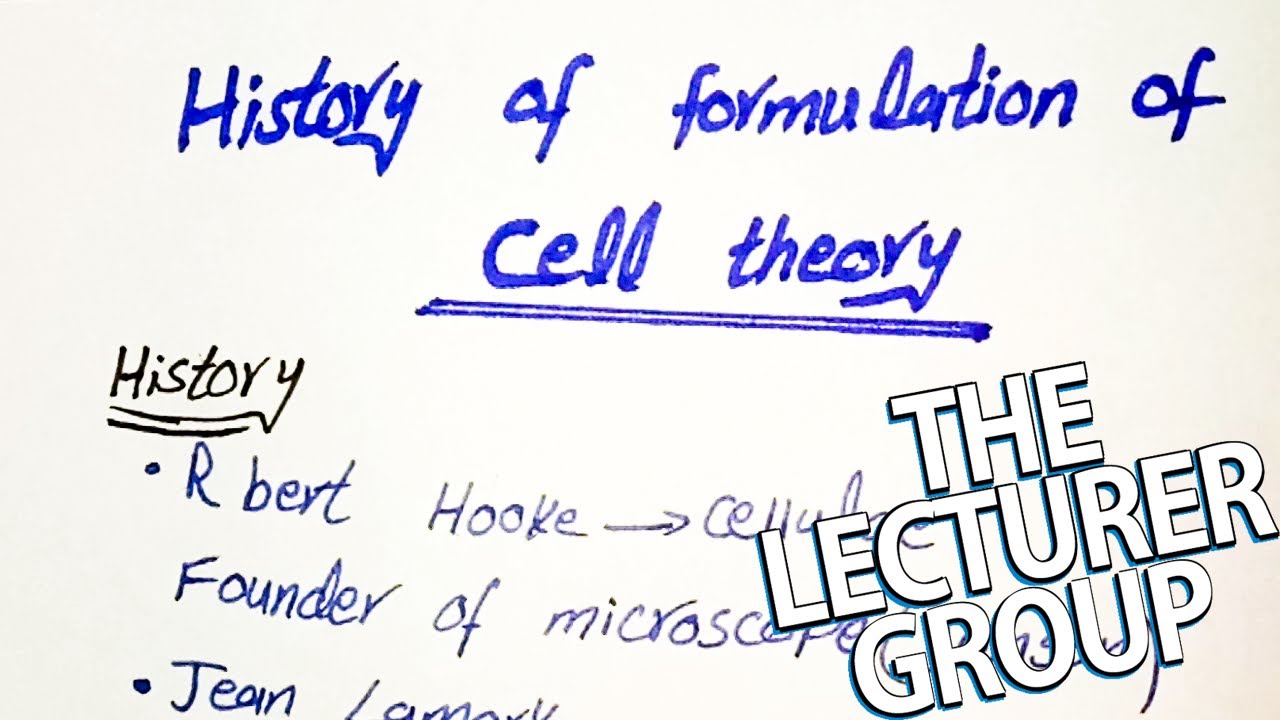 History of formulation of
Cell theory
History
• R bert Hooke → cellulae
Founder of microscope
• Jean Lamark
THE
LECTURER
GROUP